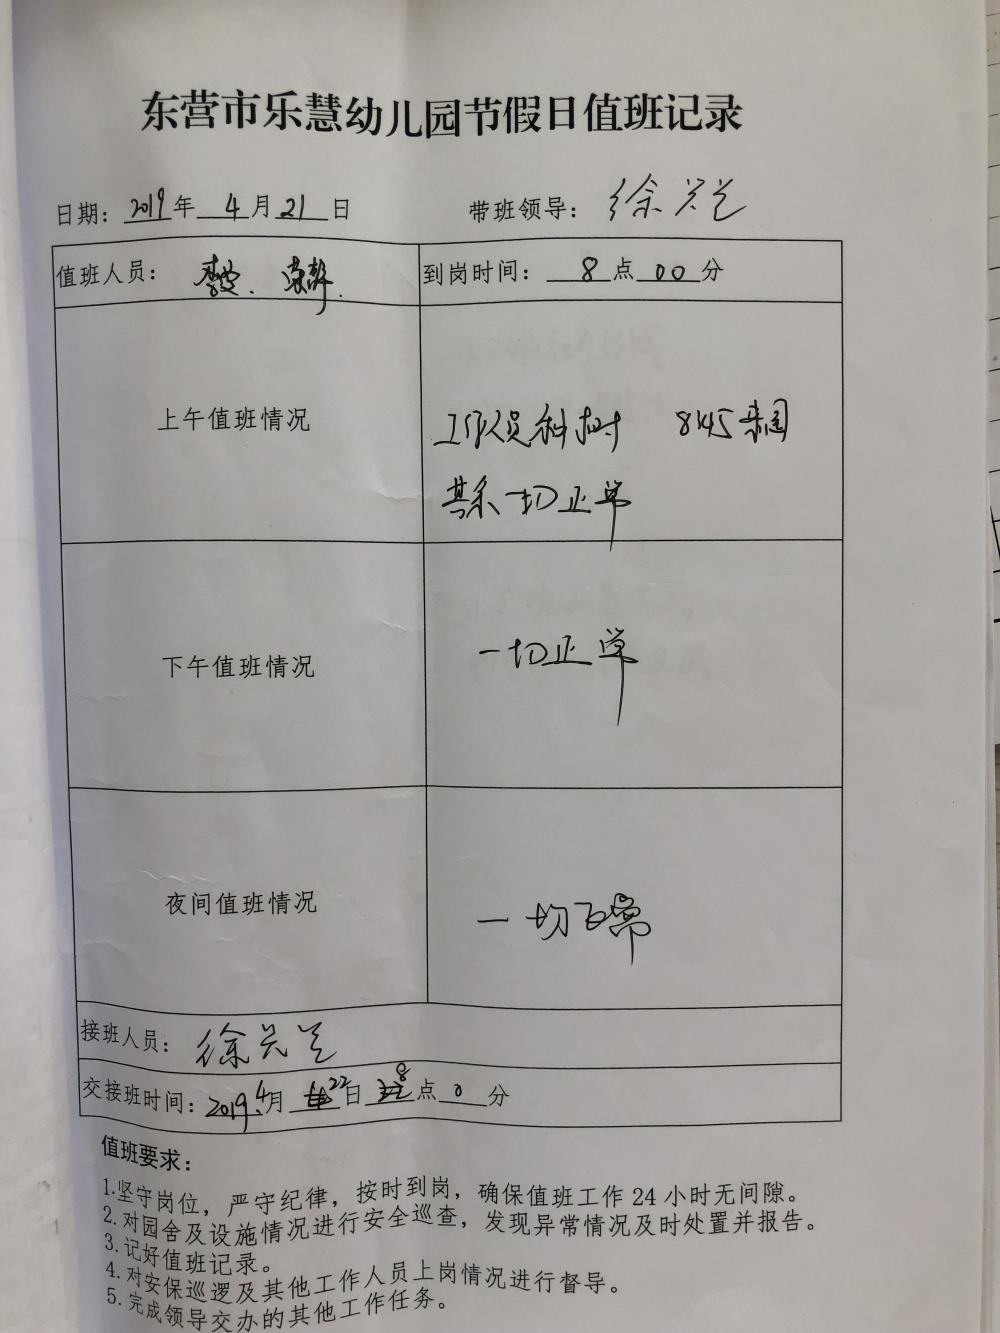 东营市乐慧幼儿园节假日值班记录
日期：2019年 4 月 21 日 带班领导：徐兴兰
值班人员： 到岗时间： 8 点 00 分
上午值班情况
工作人员种树 8:45来园
其余一切正常
下午值班情况
一切正常
夜间值班情况
一切正常
接班人员：徐兴兰
交接班时间：2019.4月 22日 8点 0 分
值班要求：
1.坚守岗位，严守纪律，按时到岗，确保值班工作24小时无间隙。
2.对园舍及设施情况进行安全巡查，发现异常情况及时处置并报告。
3.记好值班记录。
4.对安保巡逻及其他工作人员上岗情况进行督导。
5.完成领导交办的其他工作任务。